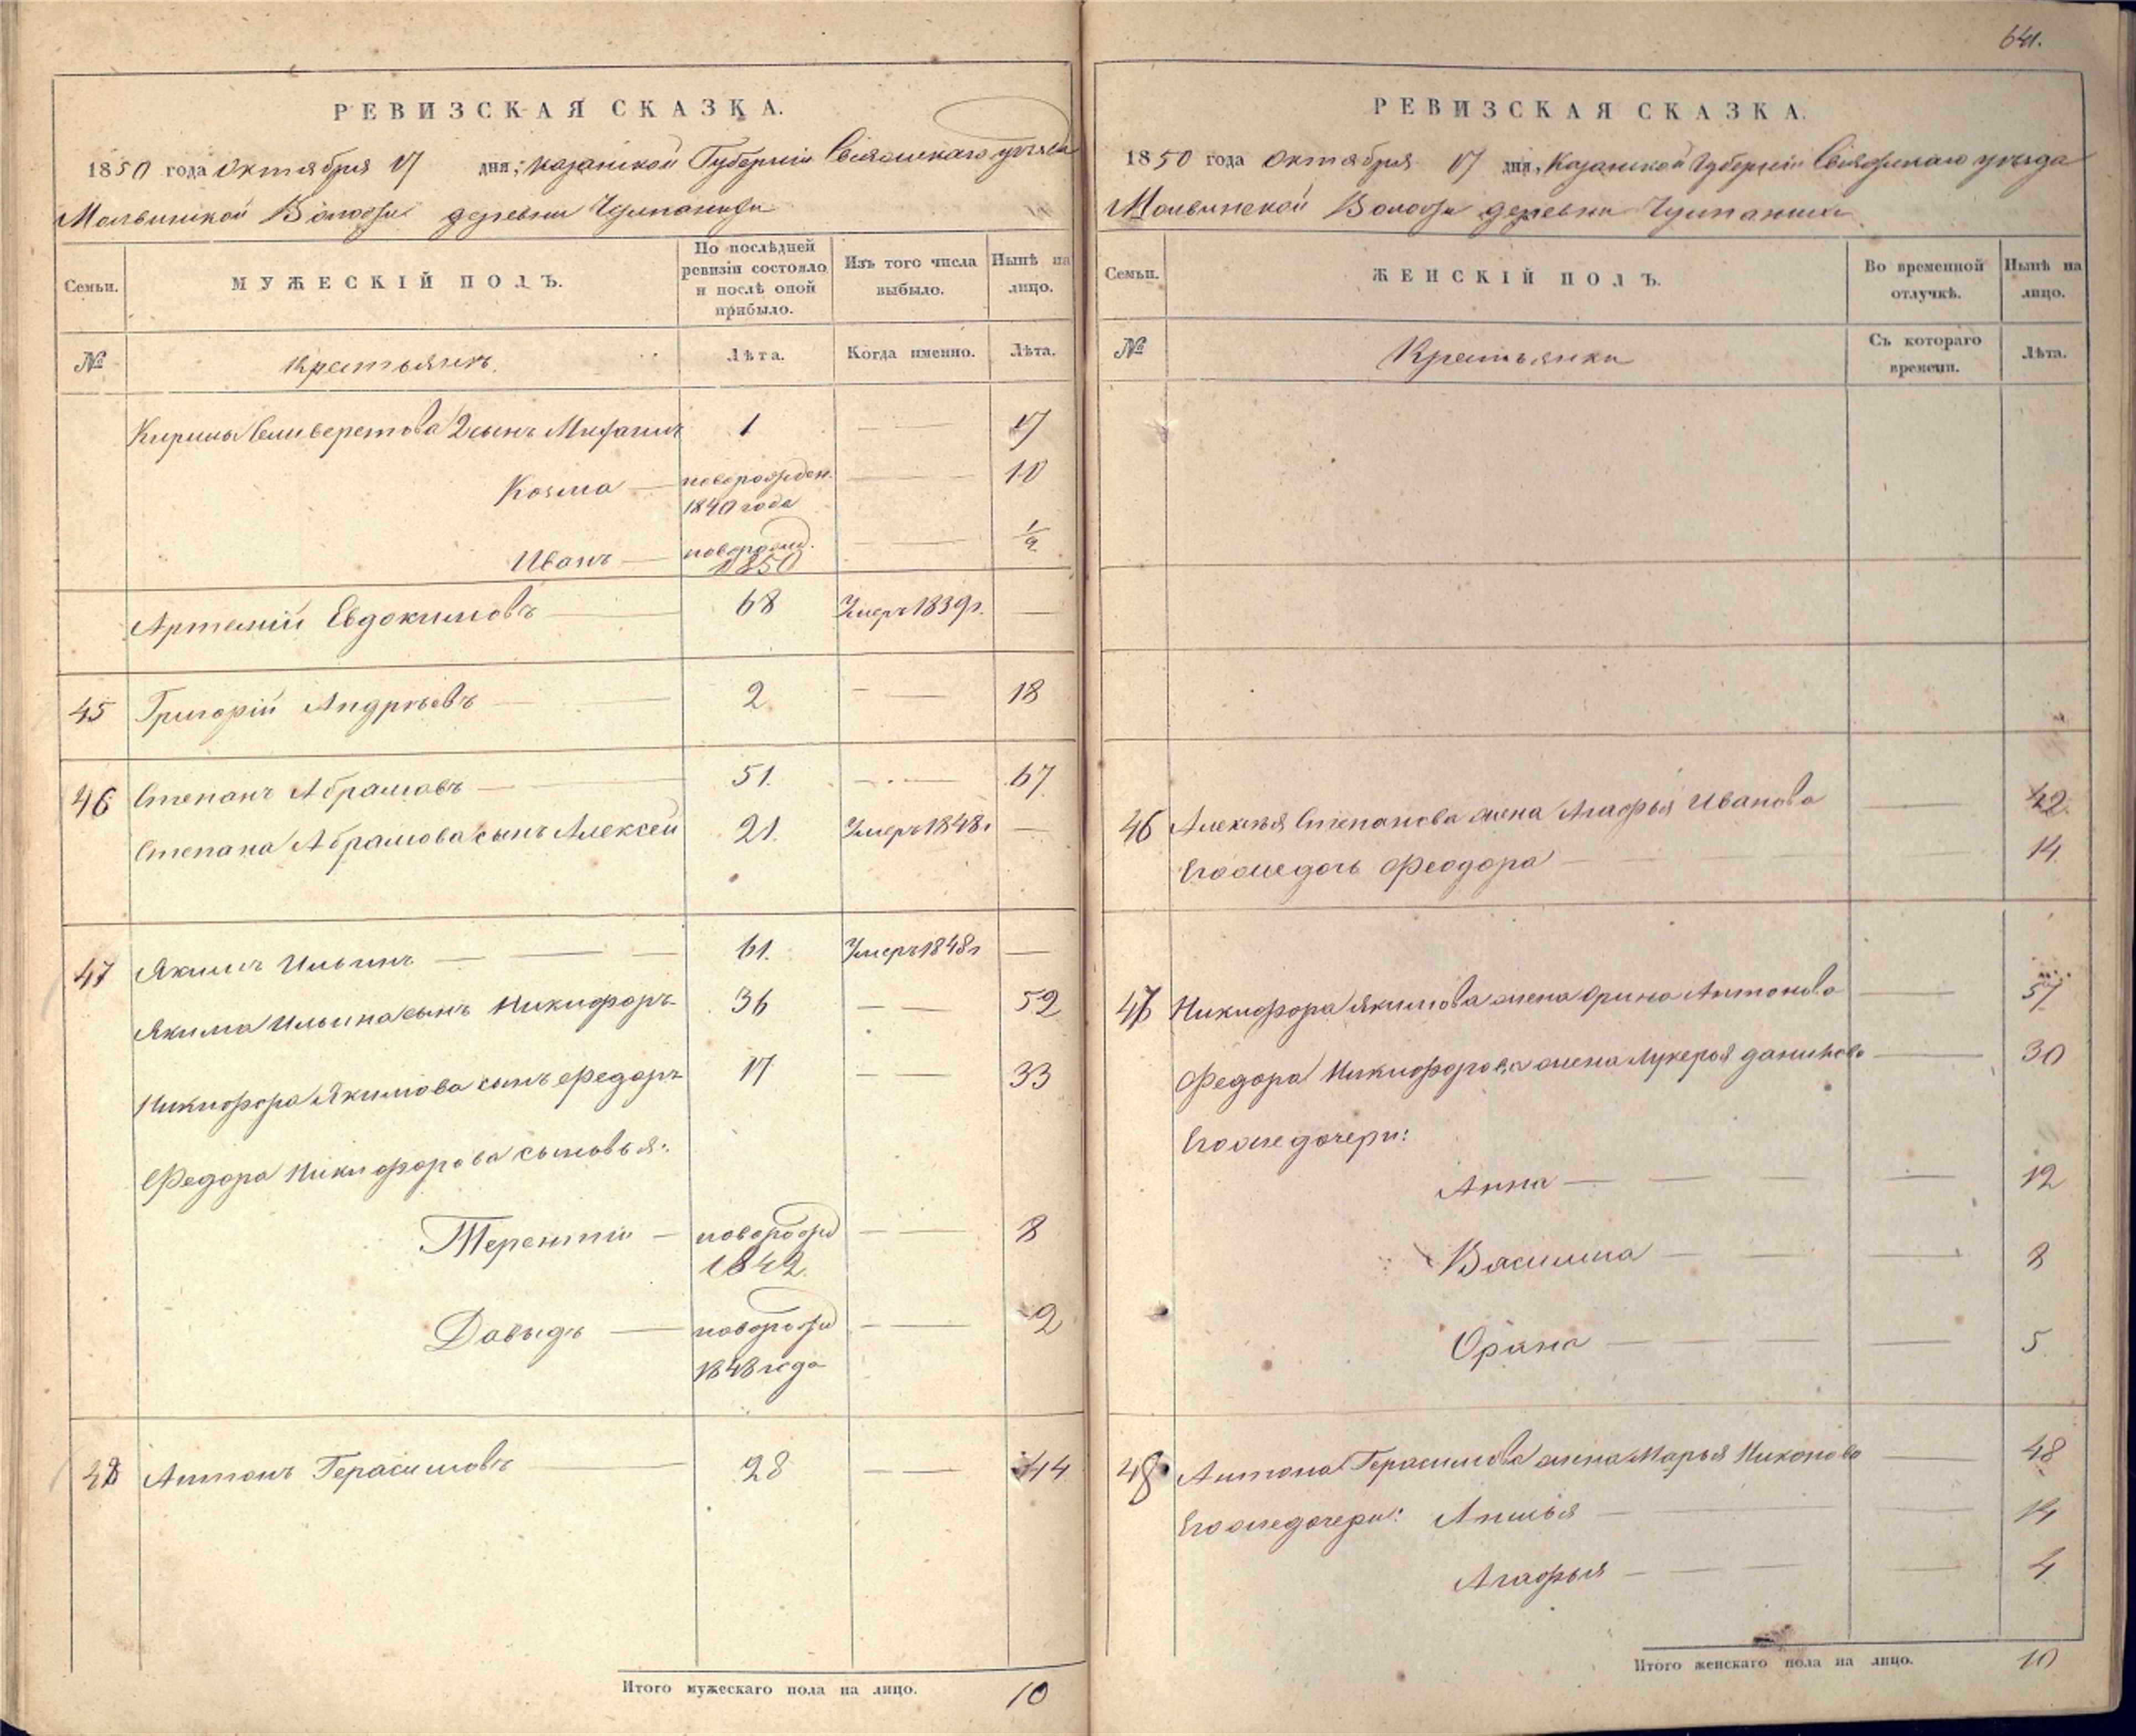 РЕВИЗСКАЯ СКАЗКА.
1850 года октября 17 дня; казанской Губернии Свіяжскаго уѣзда
Молвинской Волости деревни
Семьи. МУЖЕСКІЙ ПОЛЪ. По послѣдней ревизіи состояло и послѣ оной прибыло. Изъ того числа выбыло. Нынѣ на лицо.
№ Крестьянъ. Лѣта. Когда именно. Лѣта.
Кирилы Селиверстова 2 сынъ 1 — 17
Козма — новорожден. 1840 года — 10
Иванъ — новорожд. 1850 — 1/2
Артемій Евдокимовъ — 68 Умеръ 1839 г. —
45 Григорій Андреевъ — 2 — 18
46 Степанъ Абрамовъ — 51. — 67
Степана Абрамова сынъ Алексей 21. Умеръ 1848 г —
47 Якимъ Ильинъ — 61. Умеръ 1848 г —
Якима Ильина сынъ Никифоръ 36 — 52
Никифора Якимова сынъ Федоръ 17 — 33
Федора Никифорова сыновья:
Терентий — новорожд 1842 — 8
Давыдъ — новорожд 1848 года — 2
48 Антонъ Герасимовъ — 28 — 44
Итого мужескаго пола на лицо. 10
641.
РЕВИЗСКАЯ СКАЗКА.
1850 года Октября 17 дня, Казанской Губернии Свіяжскаго уѣзда
Молвинской Волости деревни
Семьи. ЖЕНСКІЙ ПОЛЪ. Во временной отлучкѣ. Нынѣ на лицо.
№ Крестьянки Съ котораго времени. Лѣта.
46 Алексѣя Степанова жена Агафья Иванова — 42
Его же дочь Феодора — 14
47 Никифора Якимова жена Орина Антонова — 51
Федора Никифорова жена Лукерья Данилова — 30
Его же дочери:
Анна — 12
Василиса — 8
Орина — 5
48 Антона Герасимова жена Марья Никонова — 48
Его же дочери: — 14
Агафья — 4
Итого женскаго пола на лицо. 10